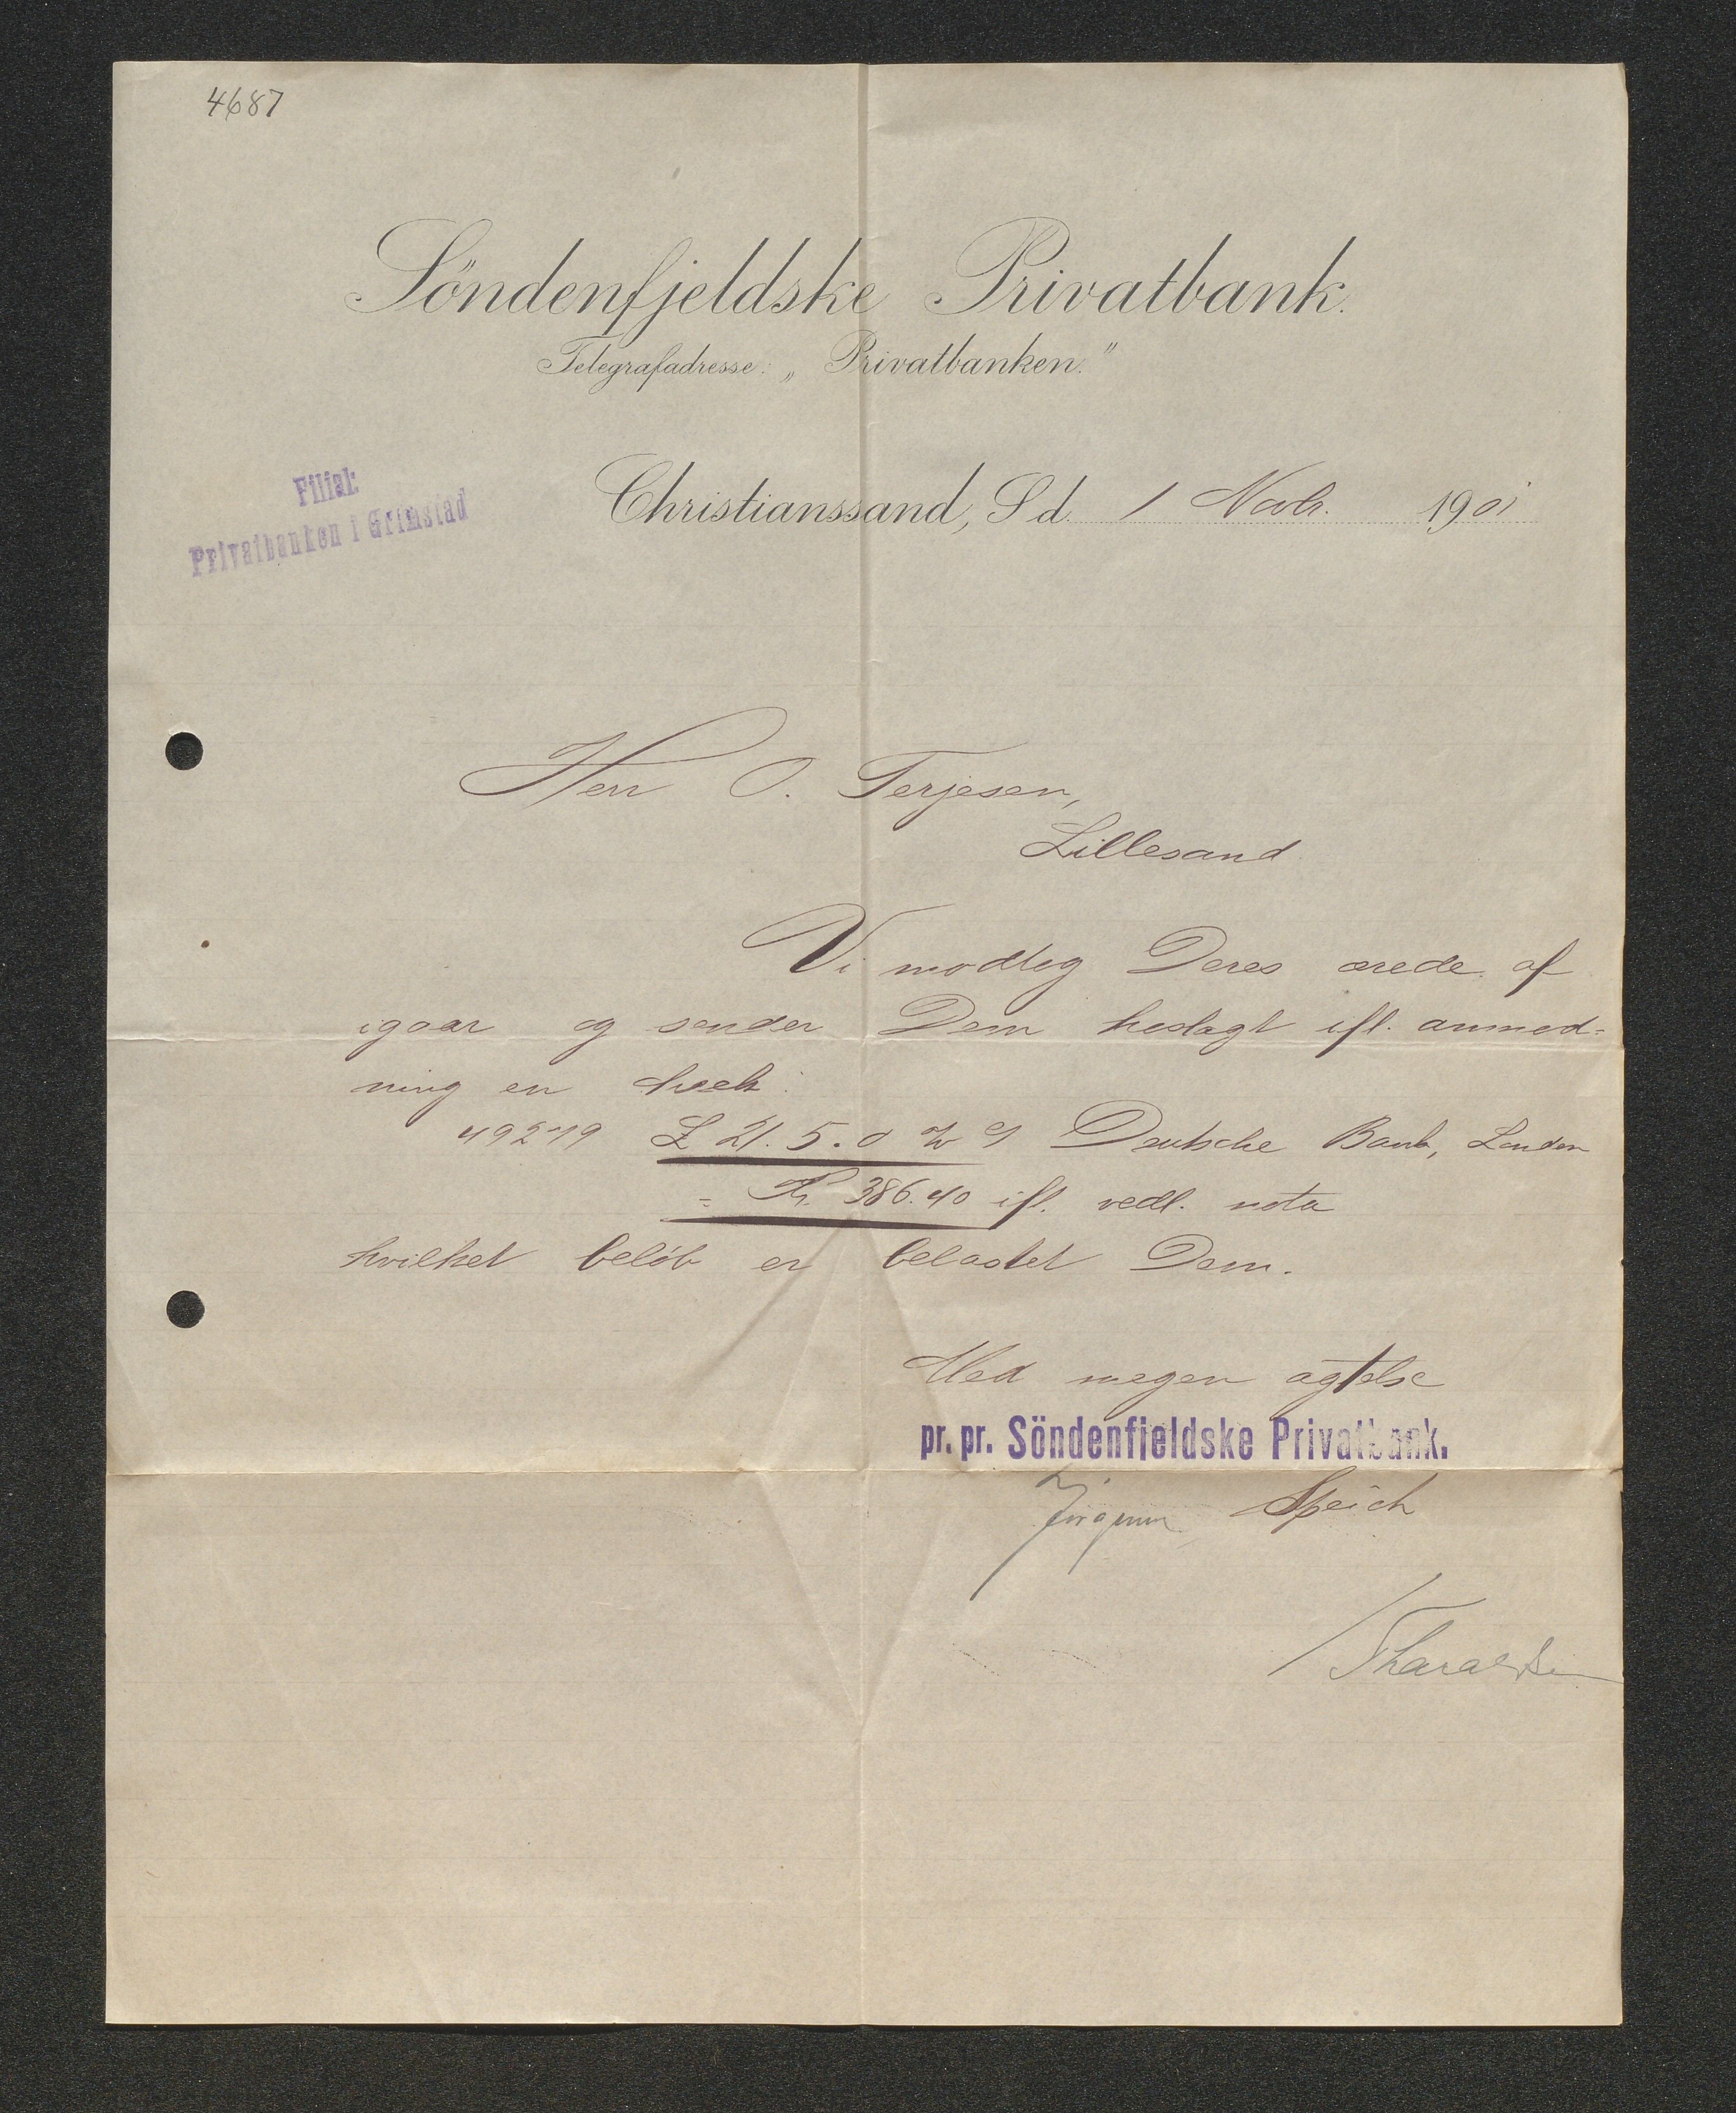 4687
Söndenfjeldske Privatbank.
Telegrafadresse: „Privatbanken."
Christianssand, S d. 1 Novbr. 1901
Filial:
Privatbanken i Grimstad
Herr O. Terjesen,
Lillesand
Vi modtog Deres ærede af
igaar og sender Dem heslagt ifl. anmod=
ning en check:
49279 £ 21.5.0 Deutsche Bank, London
= Kr. 386.40 ifl. vedl. nota
hvilket beløb er belastet Dem.
Med megen agtelse
pr. pr. Söndenfjeldske Privatbank.
Speich
Tharaldsen